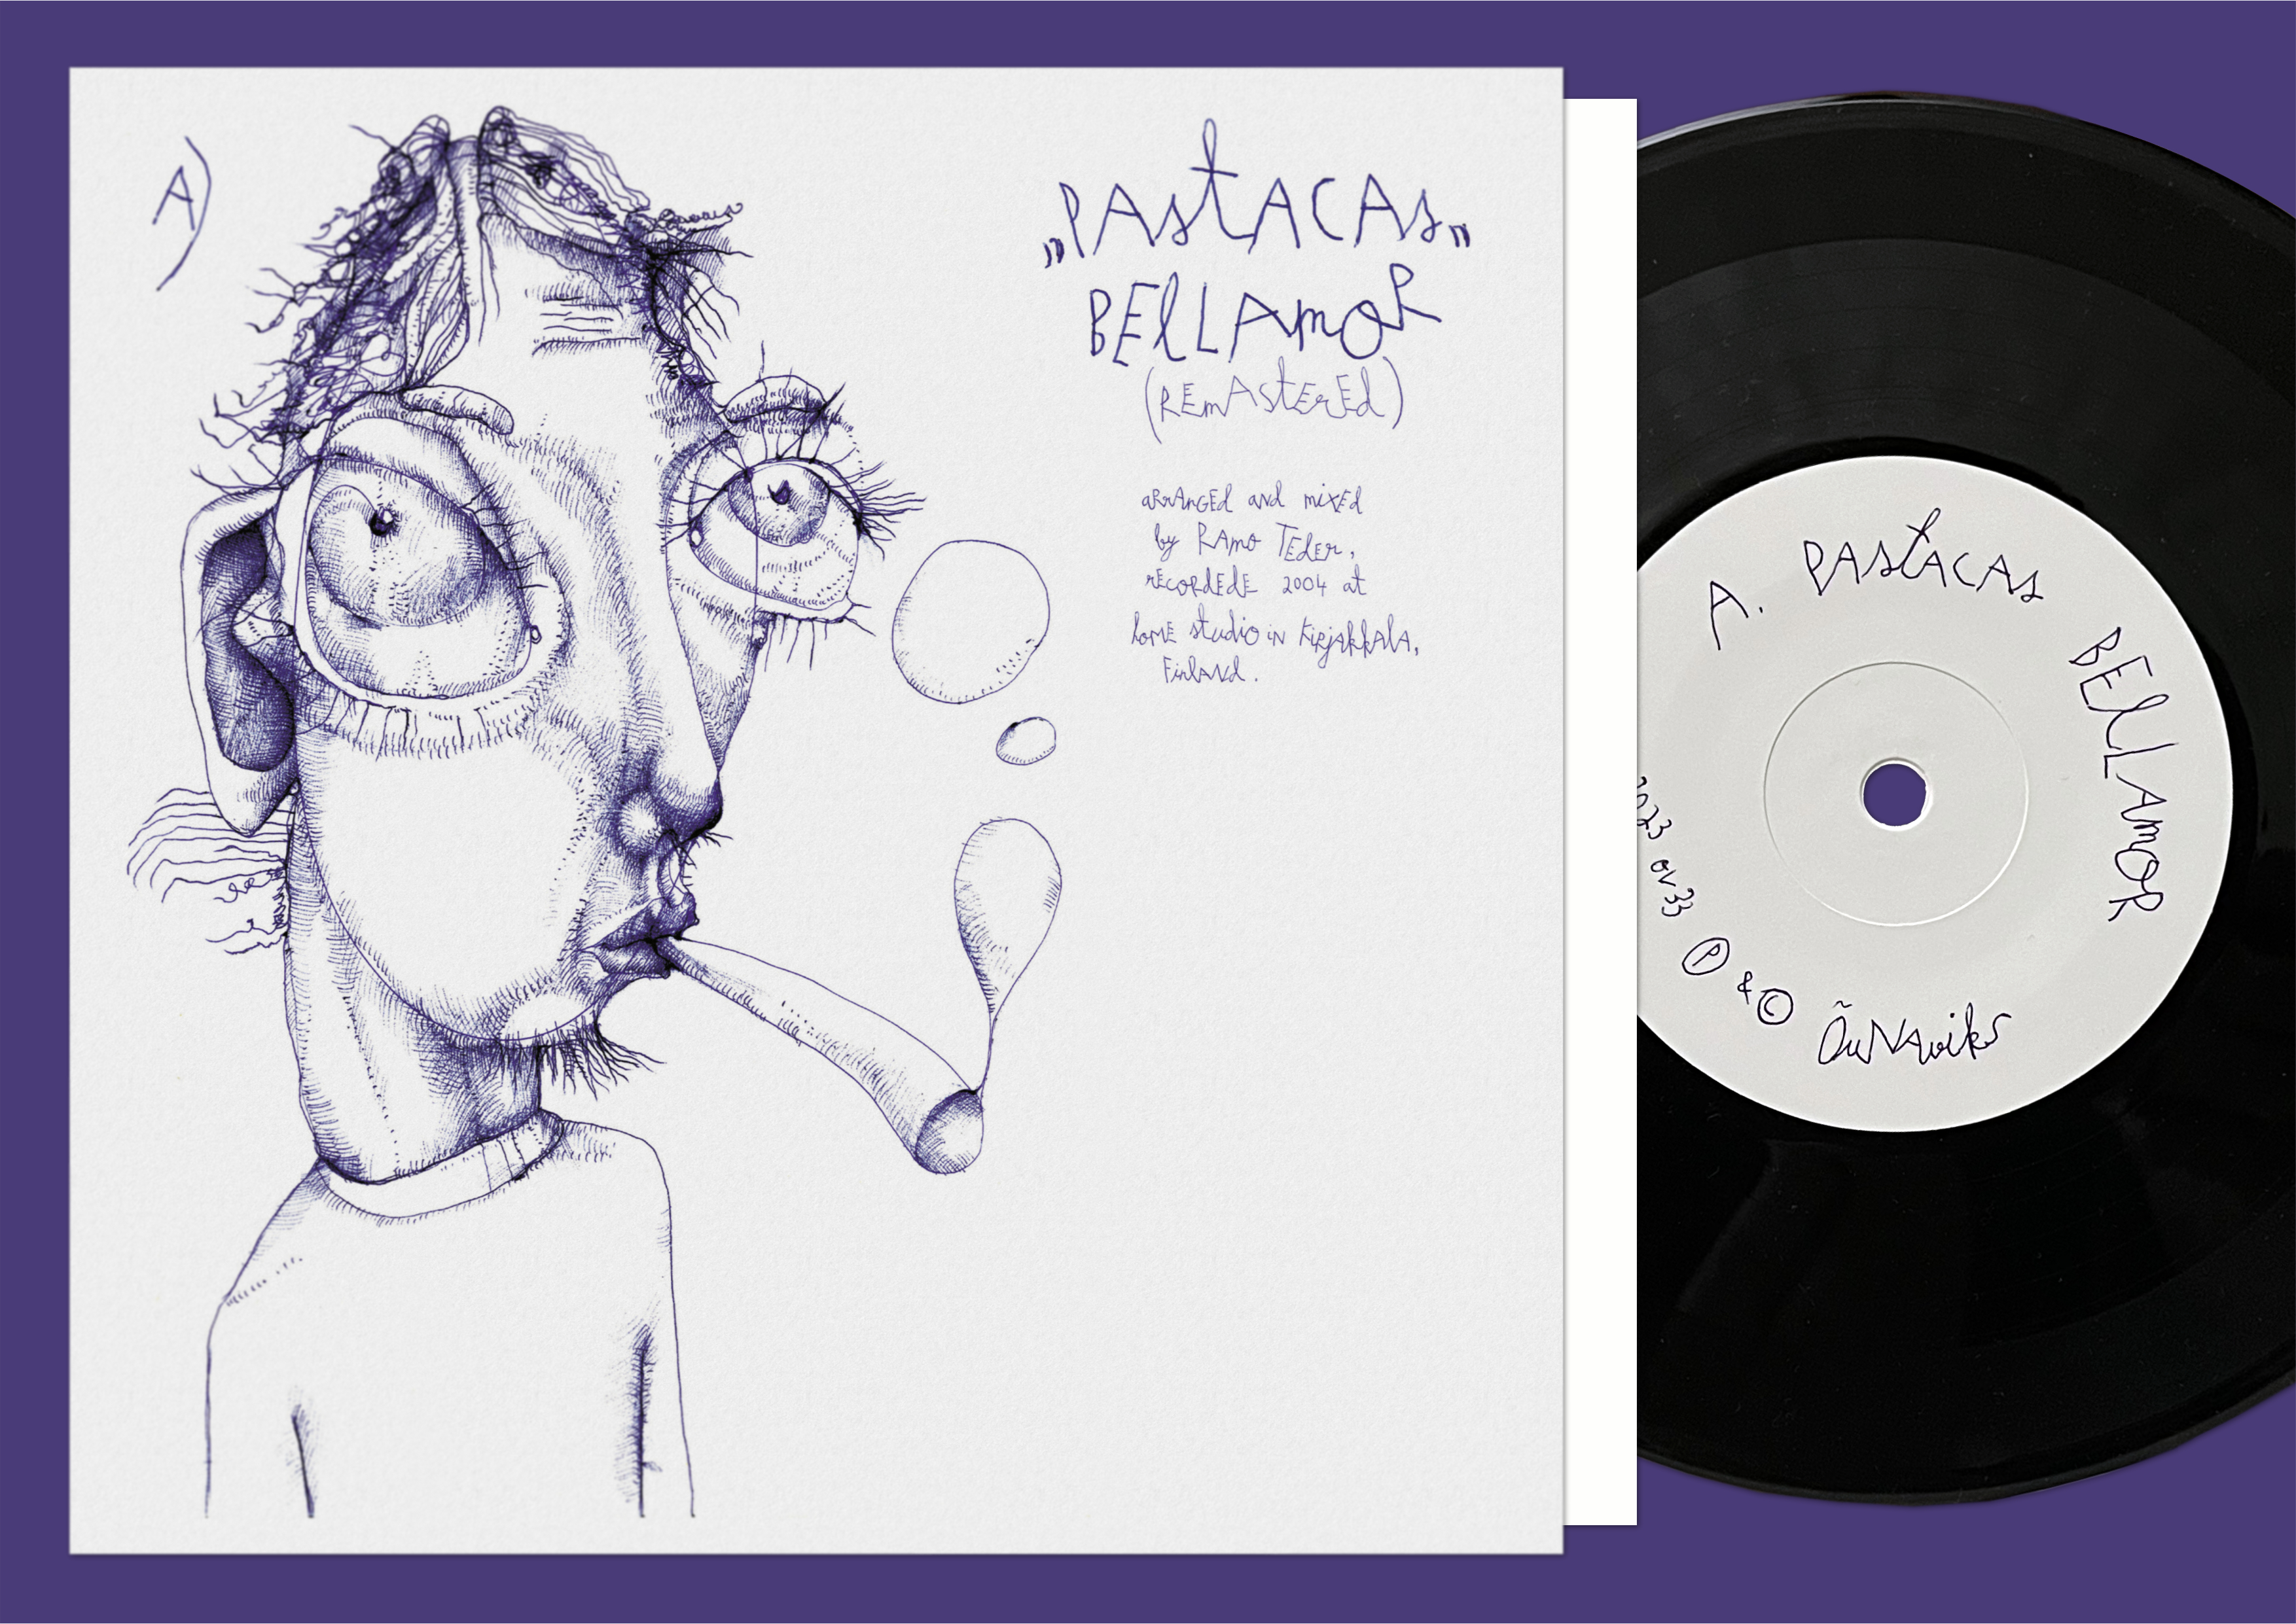 A)
„PAstACAs„
BEllAmoR
(REmAstErEd)
aRrAnGEd and mixEd
by RAmo TEdEr,
rECORdEdE 2004 at
homE studio iN KiRjAkkAlA,
FinlANd.
A. PAstACAs
BEllAmoR
2023 ov 33 Ⓟ & © ÕuNAviks